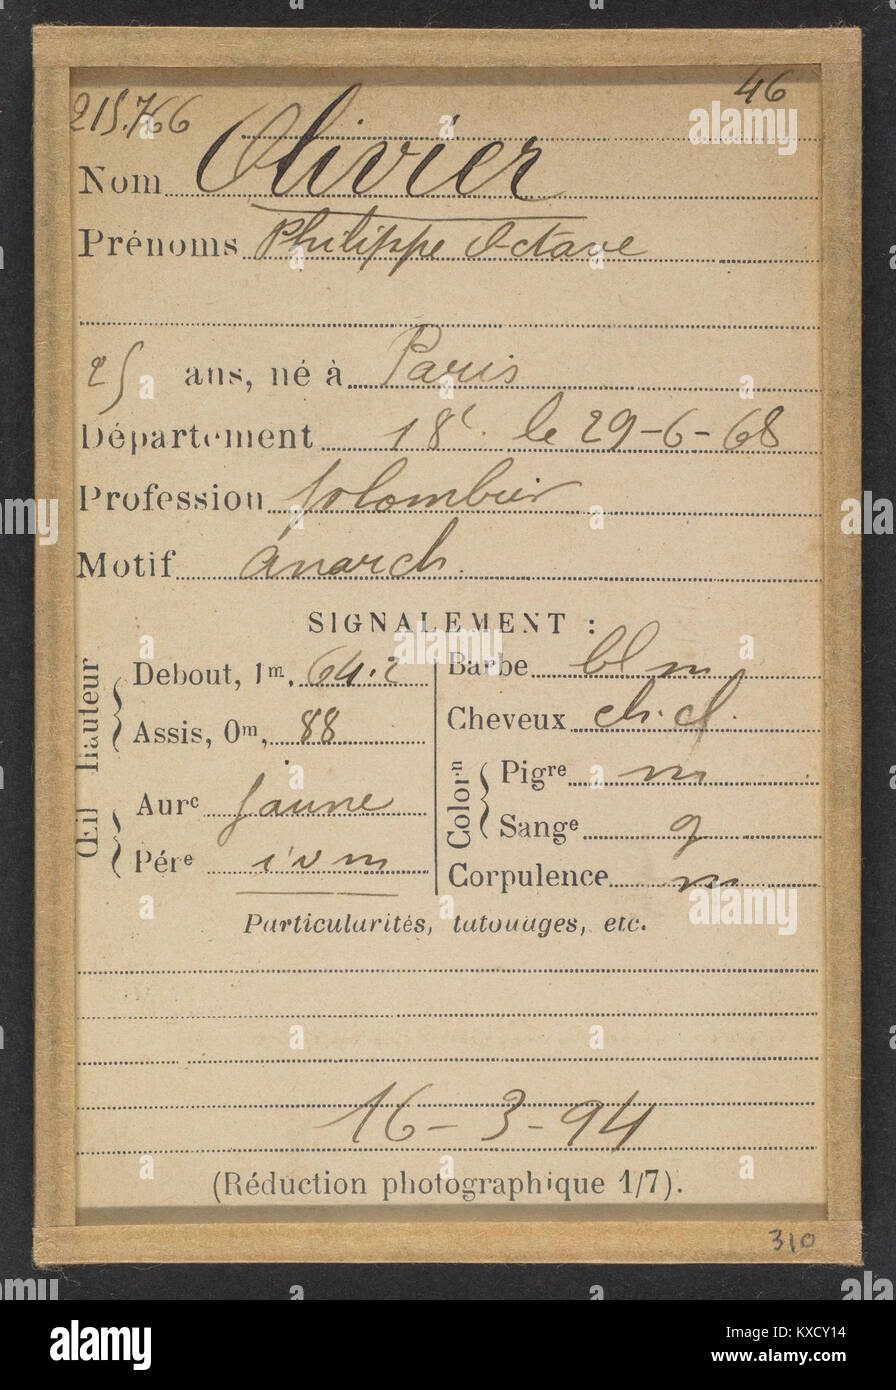 46
215.766
Nom Olivier
Prénoms Philippe Octave
25 ans, né à Paris
Département 18e. le 29-6-68
Profession plombier
Motif anarch.
SIGNALEMENT :
Hauteur
Debout, 1m, 64.2
Assis, 0m, 88
Œil
Aurc jaune
Pére i v m
Barbe bl m
Cheveux ch. cl.
Colorn
Pigre m
Sange g
Corpulence m
Particularités, tatouages, etc.
16-3-94
(Réduction photographique 1/7).
310
alamy
Image ID: KXCY14
www.alamy.com